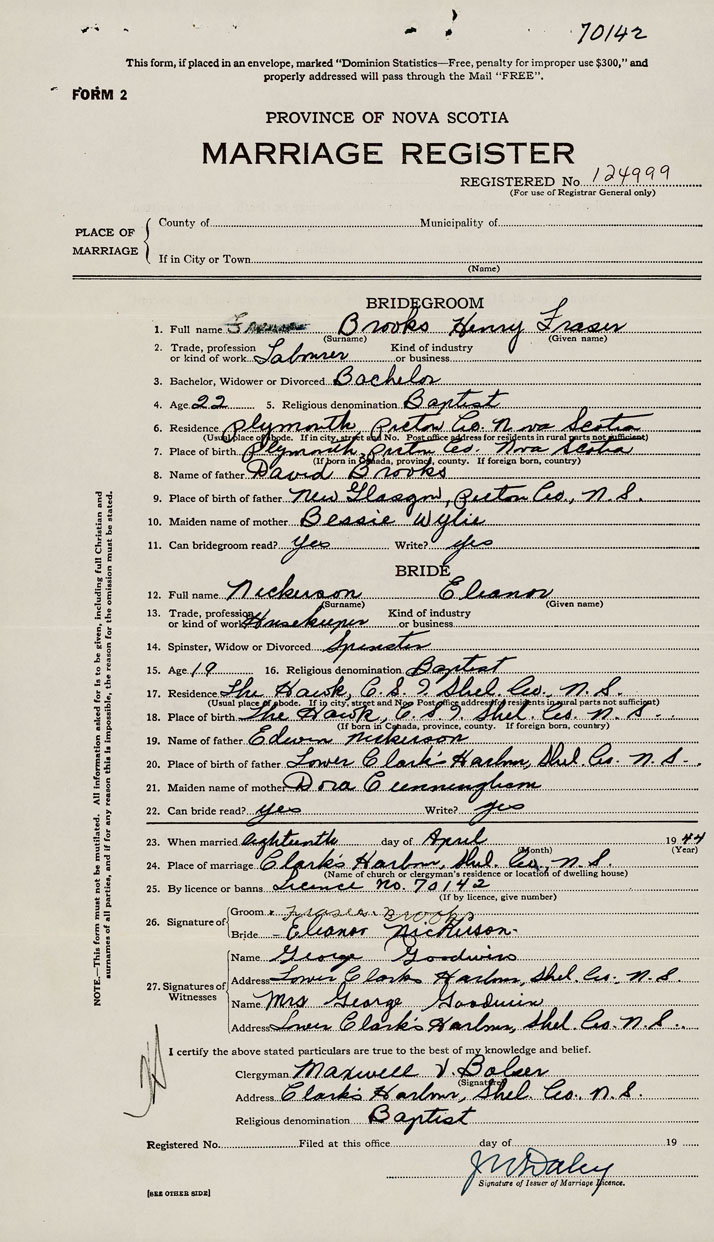 70142
This form, if placed in an envelope, marked "Dominion Statistics—Free, penalty for improper use $300," and
properly addressed will pass through the Mail "FREE".
FORM 2
PROVINCE OF NOVA SCOTIA
MARRIAGE REGISTER
REGISTERED No. 124999
(For use of Registrar General only)
PLACE OF MARRIAGE
County of Municipality of
If in City or Town
(Name)
BRIDEGROOM
1. Full name Brooks Henry Fraser
(Surname) (Given name)
2. Trade, profession or kind of work Labourer Kind of industry or business
3. Bachelor, Widower or Divorced Bachelor
4. Age 22 5. Religious denomination Baptist
6. Residence Plymouth, Picton Co. Nova Scotia
(Usual place of abode. If in city, street and No. Post office address for residents in rural parts not sufficient)
7. Place of birth Plymouth, Picton Co. Nova Scotia
(If born in Canada, province, county. If foreign born, country)
8. Name of father David Brooks
9. Place of birth of father New Glasgow, Picton Co., N.S.
10. Maiden name of mother Bessie Wylie
11. Can bridegroom read? yes Write? yes
BRIDE
12. Full name Nickerson Eleanor
(Surname) (Given name)
13. Trade, profession or kind of work Housekeeper Kind of industry or business
14. Spinster, Widow or Divorced Spinster
15. Age 19 16. Religious denomination Baptist
17. Residence The Hawk, C.S.I. Shel. Co., N.S.
(Usual place of abode. If in city, street and No. Post office address for residents in rural parts not sufficient)
18. Place of birth The Hawk, C.S.I. Shel. Co. N.S.
(If born in Canada, province, county. If foreign born, country)
19. Name of father Edwin Nickerson
20. Place of birth of father Lower Clark's Harbour, Shel. Co. N.S.
21. Maiden name of mother Dora Cunningham
22. Can bride read? yes Write? yes
23. When married eighteenth day of April 1944
(Month) (Year)
24. Place of marriage Clark's Harbour, Shel. Co., N.S.
(Name of church or clergyman's residence or location of dwelling house)
25. By licence or banns Licence No. 70142
(If by licence, give number)
26. Signature of
Groom x Fraser Brooks
Bride Eleanor Nickerson
27. Signatures of Witnesses
Name George Goodwin
Address Lower Clarks Harbour, Shel. Co., N.S.
Name Mrs George Goodwin
Address Lower Clark's Harbour, Shel. Co. N.S.
I certify the above stated particulars are true to the best of my knowledge and belief.
Clergyman Maxwell V. Bolser
(Signature)
Address Clark's Harbour, Shel. Co., N.S.
Religious denomination Baptist
Registered No. Filed at this office day of 19
Daley
Signature of Issuer of Marriage Licence.
[SEE OTHER SIDE]
NOTE.—This form must not be mutilated. All information asked for is to be given, including full Christian and
surnames of all parties, and if for any reason this is impossible, the reason for the omission must be stated.